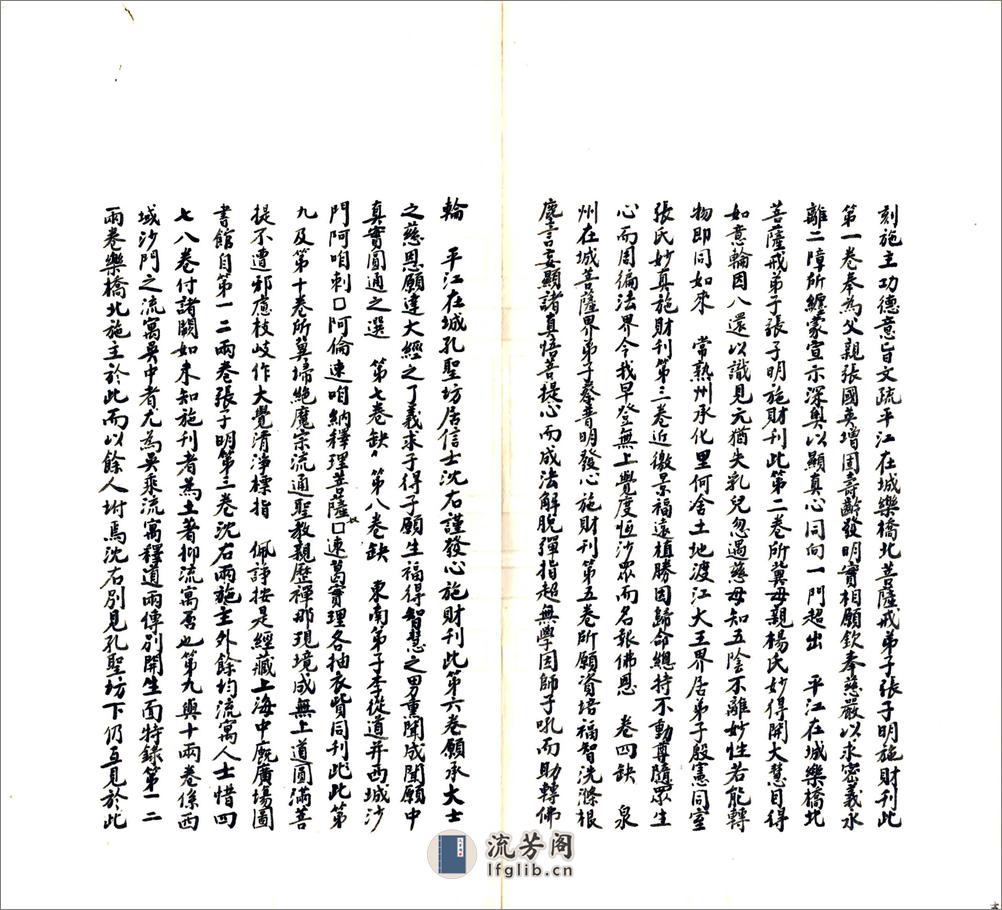 刻施主功德意旨文疏平江在城樂橋北菩薩戒弟子張子明施財刊此
第一卷奉為父親張國英增固壽齡發明實相願欽奉慈嚴以求密義永
離二障所纏蒙宣示深奥以顯真心同向一門超出　平江在城樂橋北
菩薩戒弟子張子明施財刊此第二卷所冀母親楊氏妙得開大慧目得
如意輪因八還以識見元猶失乳兒忽遇慈母知五陰不離妙性若能轉
物即同如來　常熟州承化里何舍土地渡江大王界居弟子殷憲同室
張氏妙真施財刊第三卷近徼景福遠植勝因歸命總持不動尊隨眾生
心而周徧法界今我早登無上覺度恆沙眾而名報佛恩　卷四缺　泉
州在城菩薩界弟子蔡普明發心施財刊第五卷所願資培福智洗滌根
塵言妄顯諸真悟菩提心而成法解脫彈指超無學因師子吼而助轉佛
輪　平江在城孔聖坊居信士沈右謹發心施財刊此第六卷願承大士
之慈恩願達大經之了義求子得子願生福得智慧之男重聞成聞願中
真實圓通之選　第七卷缺　第八卷缺　東南第子李從道并西域沙
門阿咱剌口阿倫速咱納釋理菩薩口速葛實理各抽衣貲同刊此此第
九及第十卷所冀埽絕魔宗流通聖教親歷禪那現境成無上道圓滿菩
提不遭邪慮枝岐作大覺清淨標指　佩諍按是經藏上海中廐廣場圖
書館自第一二兩卷張子明第三卷沈右兩施主外餘均流寓人士惜四
七八卷付諸闕如未知施刊者為土著抑流寓否也第九與十兩卷係西
域沙門之流寓吳中者尤為吳乘流寓釋道兩傳別開生面特錄第一二
兩卷樂橋北施主於此而以餘人坿焉沈右別見孔聖坊下仍互見於此
流芳阁
lfglib.cn